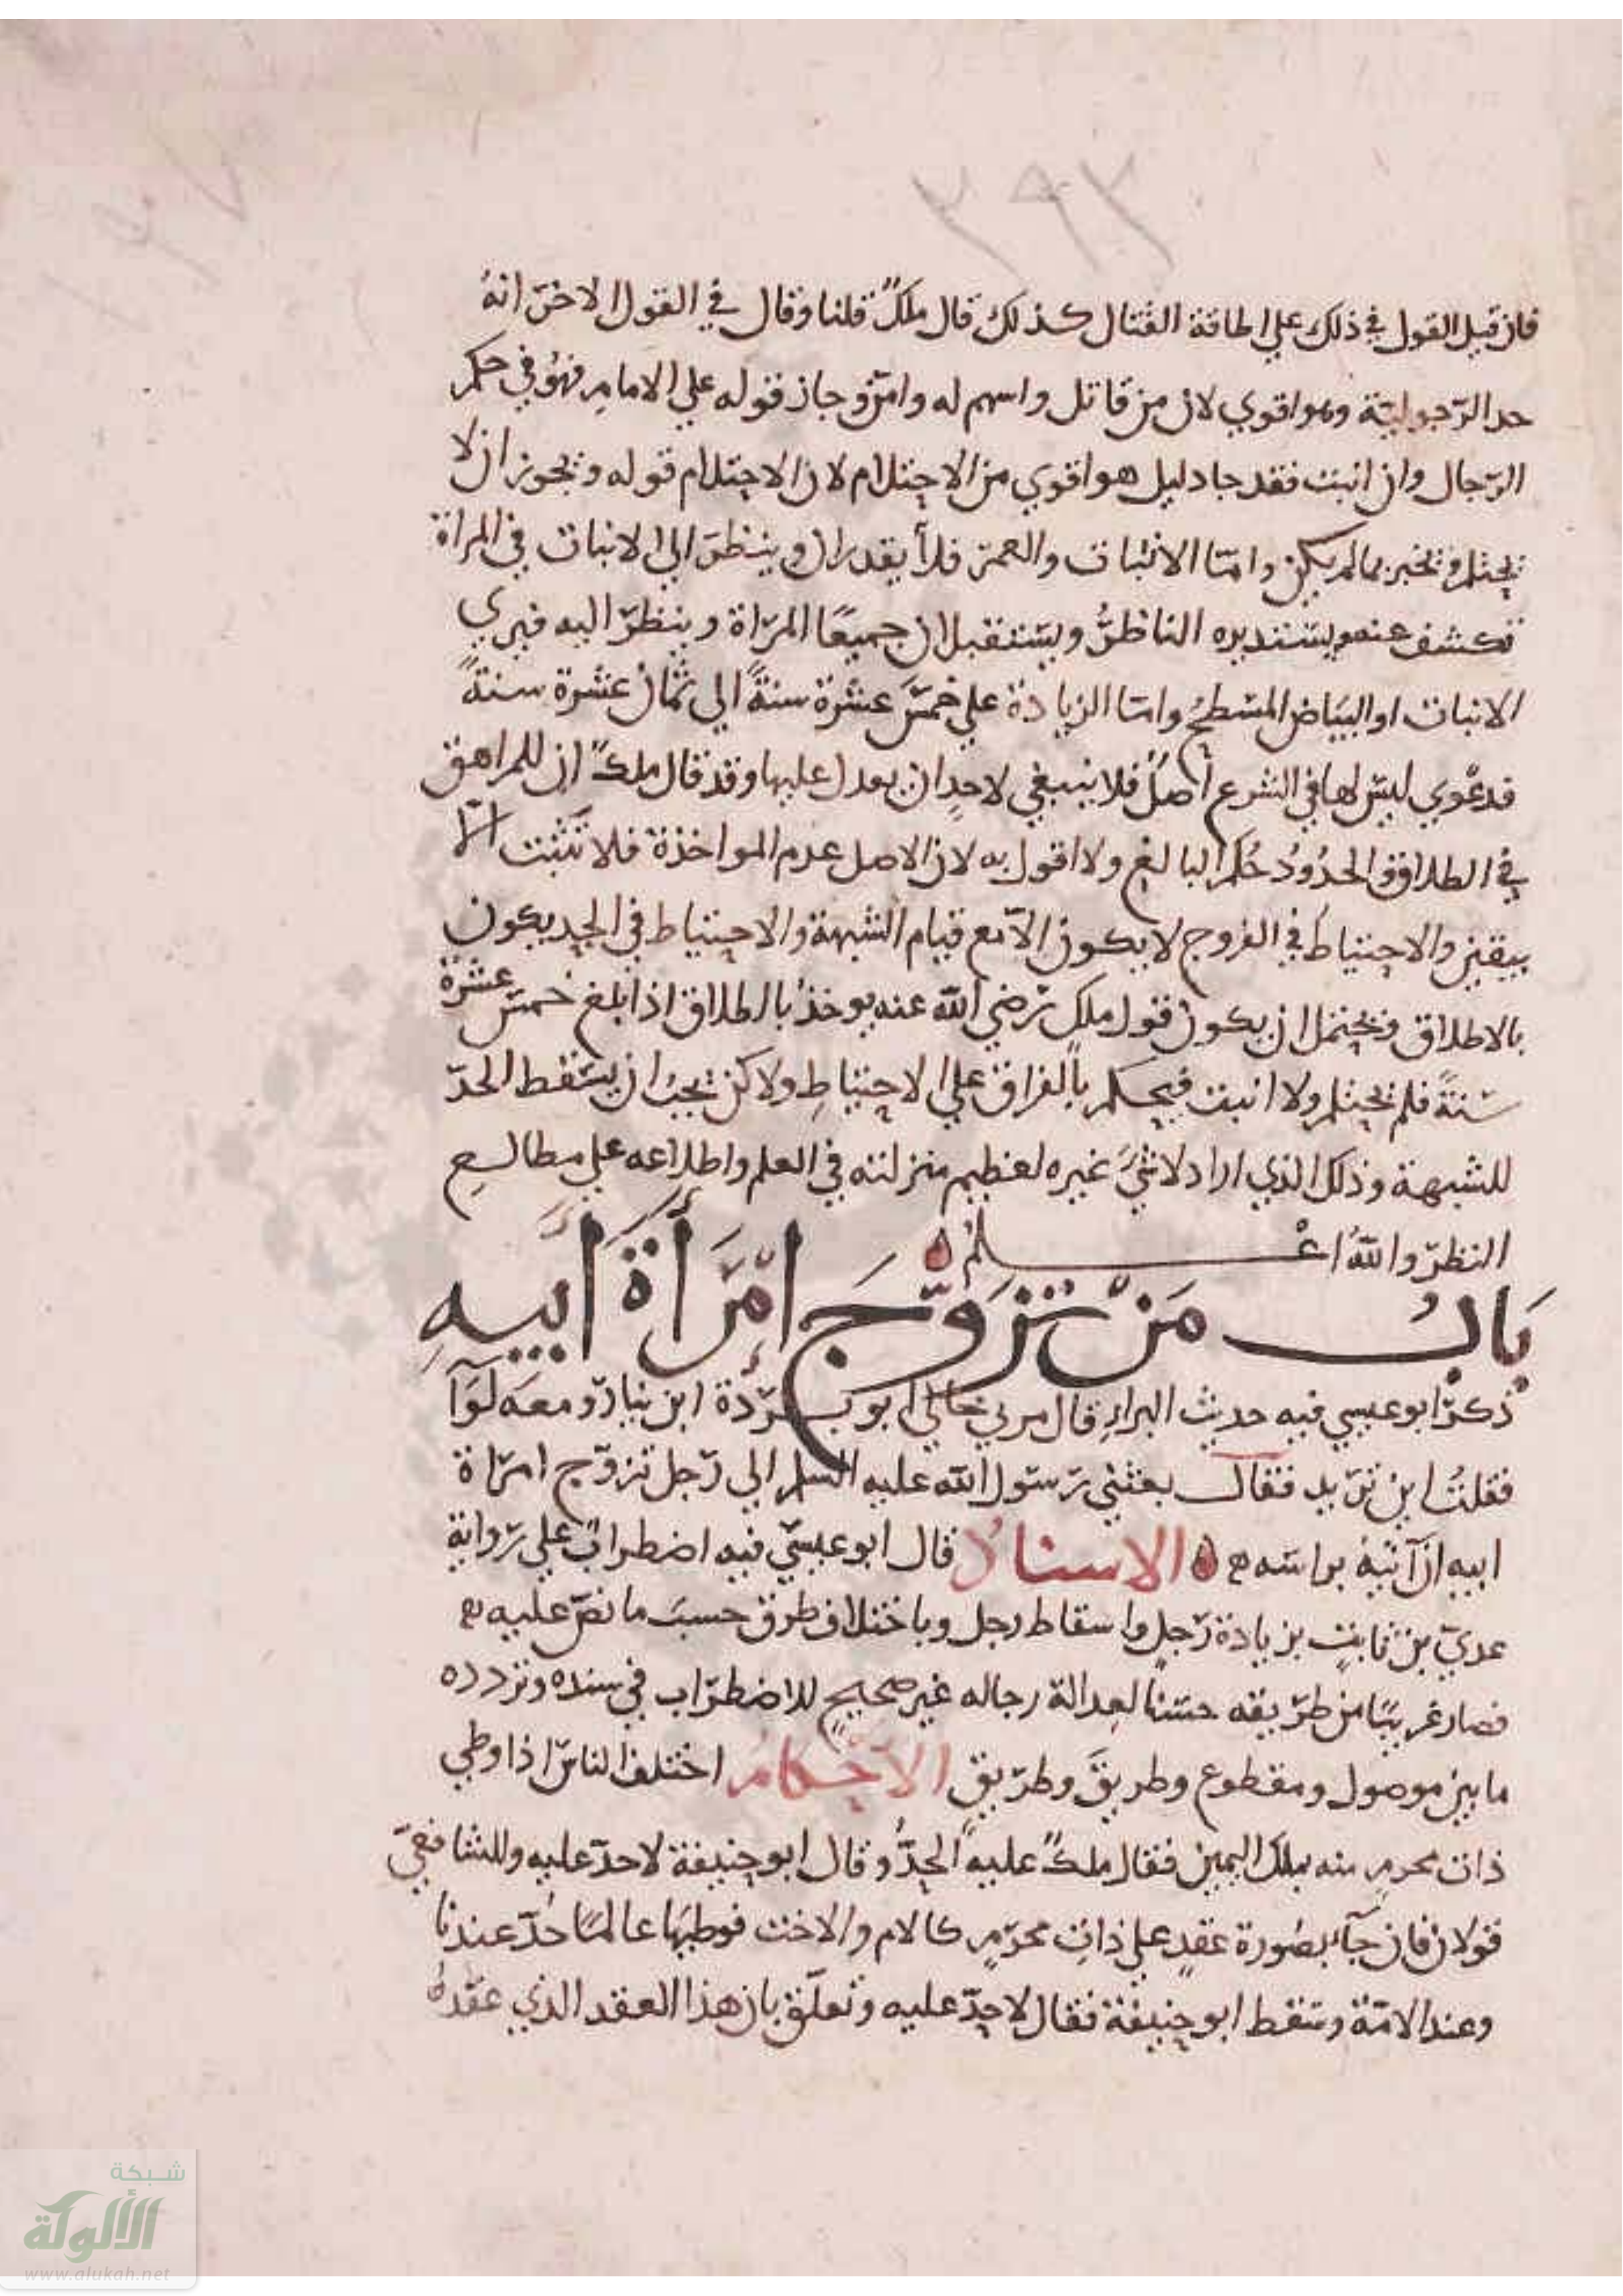 ٣٩٢
فان قيل القول في ذلك علي اطاقة القتال كذلك قال ملك قلنا وقال في القول الاخر انه
حد الرجولية وهو اقوي لان من قاتل واسهم له وامر وجاز قوله علي الامام فهو في حكم
الرجال وان انبت فقد جا دليل هو اقوي من الاحتلام لان الاحتلام قوله ويجوز ان لا
يحتلم ويخبر بما لم يكن واما الانبات والعمر فلا يقدر ان وينظر الي الانبات في المراة
تكشف عنه ويستدبره الناظر ويستقبلان جميعا المراة وينظر اليه فيري
الانبات او البياض المسطح واما الزيادة علي خمس عشرة سنة الي ثمان عشرة سنة
فدعوي ليس لها في الشرع اصل فلا ينبغي لاحد ان يعدل عليها وقد قال ملك ان للمراهق
في الطلاق والحدود حكم البالغ ولا اقول به لان الاصل عدم المواخذة فلا تثبت الا
بيقين والاحتياط في الفروج لا يكون الا مع قيام الشبهة والاحتياط في الحد يكون
بالاطلاق ويحتمل ان يكون قول ملك رضي الله عنه يوخذ بالطلاق اذا بلغ خمس عشرة
سنة فلم يحتلم ولا انبت فيحكم بالفراق علي الاحتياط ولاكن يجب ان يسقط الحد
للشبهة وذلك الذي اراد لا شي غيره لعظيم منزلته في العلم واطلاعه علي مطالع
النظر والله اعلم
باب من تزوج امراة ابيه
ذكر ابو عيسي فيه حديث البراء قال مر بي خالي ابو بردة ابن نيار ومعه لوآ
فقلت اين تريد فقال بعثني رسول الله عليه السلم الي رجل تزوج امراة
ابيه ان آتيه براسه الاسناد قال ابو عيسي فيه اضطراب علي رواية
عدي بن ثابت بزيادة رجل واسقاط رجل وباختلاف طرق حسب ما نص عليه
فصار غريبا من طريقه حسنا لعدالة رجاله غير صحيح للاضطراب في سنده وتردده
ما بين موصول ومقطوع وطريق وطريق الاحكام اختلف الناس اذا وطي
ذات محرم منه بملك اليمين فقال ملك عليه الحد وقال ابو حنيفة لا حد عليه وللشافعي
قولان فان جآ بصورة عقد علي ذات محرم كالام والاخت فوطيها عالما حد عندنا
وعند الامة وسقط ابو حنيفة فقال لا حد عليه وتعلق بان هذا العقد الذي عقده
شبكة
الألوكة
www.alukah.net